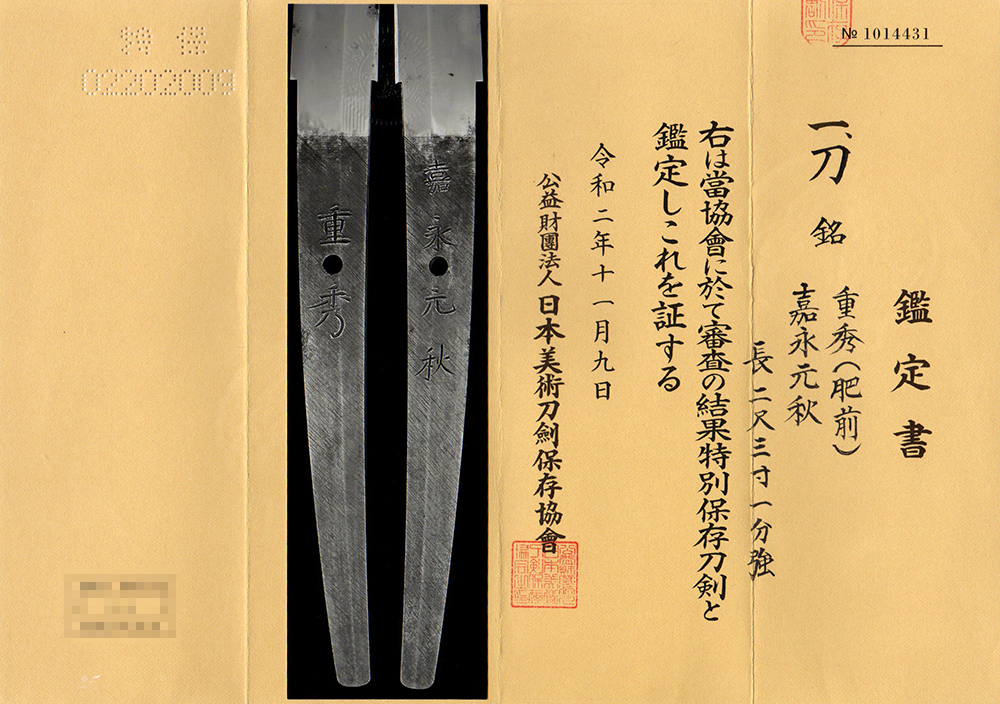 № 1014431
鑑定書
一、刀 銘 重秀(肥前)
嘉永元秋
長二尺三寸一分強
右は當協會に於て審査の結果特別保存刀剣と
鑑定しこれを証する
令和二年十一月九日
公益財團法人日本美術刀劍保存協會
嘉永元秋
重秀
特保
02202009